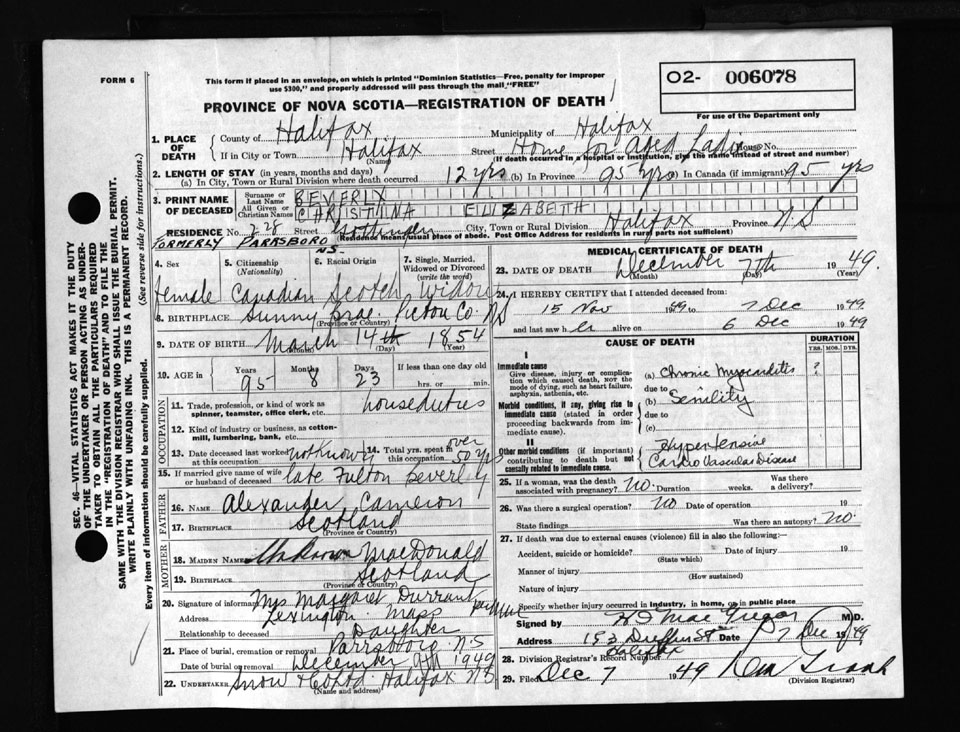 FORM 6
This form if placed in an envelope, on which is printed "Dominion Statistics—Free, penalty for improper
use $300," and properly addressed will pass through the mail "FREE"
O2- 006078
For use of the Department only
PROVINCE OF NOVA SCOTIA—REGISTRATION OF DEATH
SEC. 46—VITAL STATISTICS ACT MAKES IT THE DUTY
OF THE UNDERTAKER OR PERSON ACTING AS UNDER-
TAKER TO OBTAIN ALL THE PARTICULARS REQUIRED
IN THE "REGISTRATION OF DEATH" AND TO FILE THE
SAME WITH THE DIVISION REGISTRAR WHO SHALL ISSUE THE BURIAL PERMIT.
WRITE PLAINLY WITH UNFADING INK. THIS IS A PERMANENT RECORD.
Every item of information should be carefully supplied. (See reverse side for instructions.)
1. PLACE OF DEATH
County of Halifax Municipality of Halifax
If in City or Town Halifax Street Home for Aged Ladies House No.
(Name) (If death occurred in a hospital or institution, give the name instead of street and number)
2. LENGTH OF STAY (in years, months and days)
(a) In City, Town or Rural Division where death occurred 12 yrs (b) In Province 95 yrs (c) In Canada (if immigrant) 95 yrs
3. PRINT NAME OF DECEASED
Surname or Last Name BEVERLY
All Given or Christian Names CHRISTINA ELIZABETH
RESIDENCE No. 228 Street Gottingen City, Town or Rural Division Halifax Province N.S
FORMERLY PARRSBORO N.S. (Residence means usual place of abode. Post Office Address for residents in rural parts not sufficient)
4. Sex 5. Citizenship (Nationality) 6. Racial Origin 7. Single, Married, Widowed or Divorced (write the word)
female Canadian Scotch widow
8. BIRTHPLACE Sunny Brae. Pictou Co. N.S
(Province or Country)
9. DATE OF BIRTH March 14th 1854
(Month) (Day) (Year)
10. AGE in Years Months Days If less than one day old
95 8 23 hrs. or min.
OCCUPATION
11. Trade, profession, or kind of work as
spinner, teamster, office clerk, etc. houseduties
12. Kind of industry or business, as cotton-
mill, lumbering, bank, etc.
13. Date deceased last worked at this occupation not known 14. Total yrs. spent in this occupation over 50 yrs
15. If married give name of wife or husband of deceased late Fulton Beverley
FATHER
16. NAME Alexander Cameron
17. BIRTHPLACE Scotland
(Province or Country)
MOTHER
18. MAIDEN NAME Unknown MacDonald
19. BIRTHPLACE Scotland
(Province or Country)
20. Signature of informant Mrs Margaret Durrant
Address Lexington. Mass
Relationship to deceased Daughter
21. Place of burial, cremation or removal Parrsboro N.S
Date of burial or removal December 9th 1949
22. UNDERTAKER Snow & Co Ltd. Halifax N.S
(Name and address)
MEDICAL CERTIFICATE OF DEATH
23. DATE OF DEATH December 7th 1949.
(Month) (Day) (Year)
24. I HEREBY CERTIFY that I attended deceased from:
15 Nov 1949 to 7 Dec 1949
and last saw her alive on 6 Dec 1949
CAUSE OF DEATH DURATION
YRS. MOS. DYS.
I
Immediate cause
Give disease, injury or compli-
cation which caused death, not the
mode of dying, such as heart failure,
asphyxia, asthenia, etc.
(a) Chronic Myocarditis ?
due to
(b) Senility
Morbid conditions, if any, giving rise to
immediate cause (stated in order
proceeding backwards from im-
mediate cause).
due to
(c)
II
Other morbid conditions (if important)
contributing to death but not
causally related to immediate cause.
Hypertensive
Cardio Vascular Disease
25. If a woman, was the death associated with pregnancy? No. Duration weeks. Was there a delivery?
26. Was there a surgical operation? No Date of operation 19
State findings Was there an autopsy? No.
27. If death was due to external causes (violence) fill in also the following:
Accident, suicide or homicide? Date of injury 19
(State which)
Manner of injury
(How sustained)
Nature of injury
Specify whether injury occurred in industry, in home, or in public place
Signed by MacGregor M.D.
Address 153 St Halifax Date 7 Dec 1949
28. Division Registrar's Record Number
29. Filed Dec 7 1949
(Division Registrar)